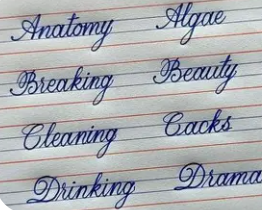 Anatomy Algae
Breaking Beauty
Cleaning Cacks
Drinking Drama